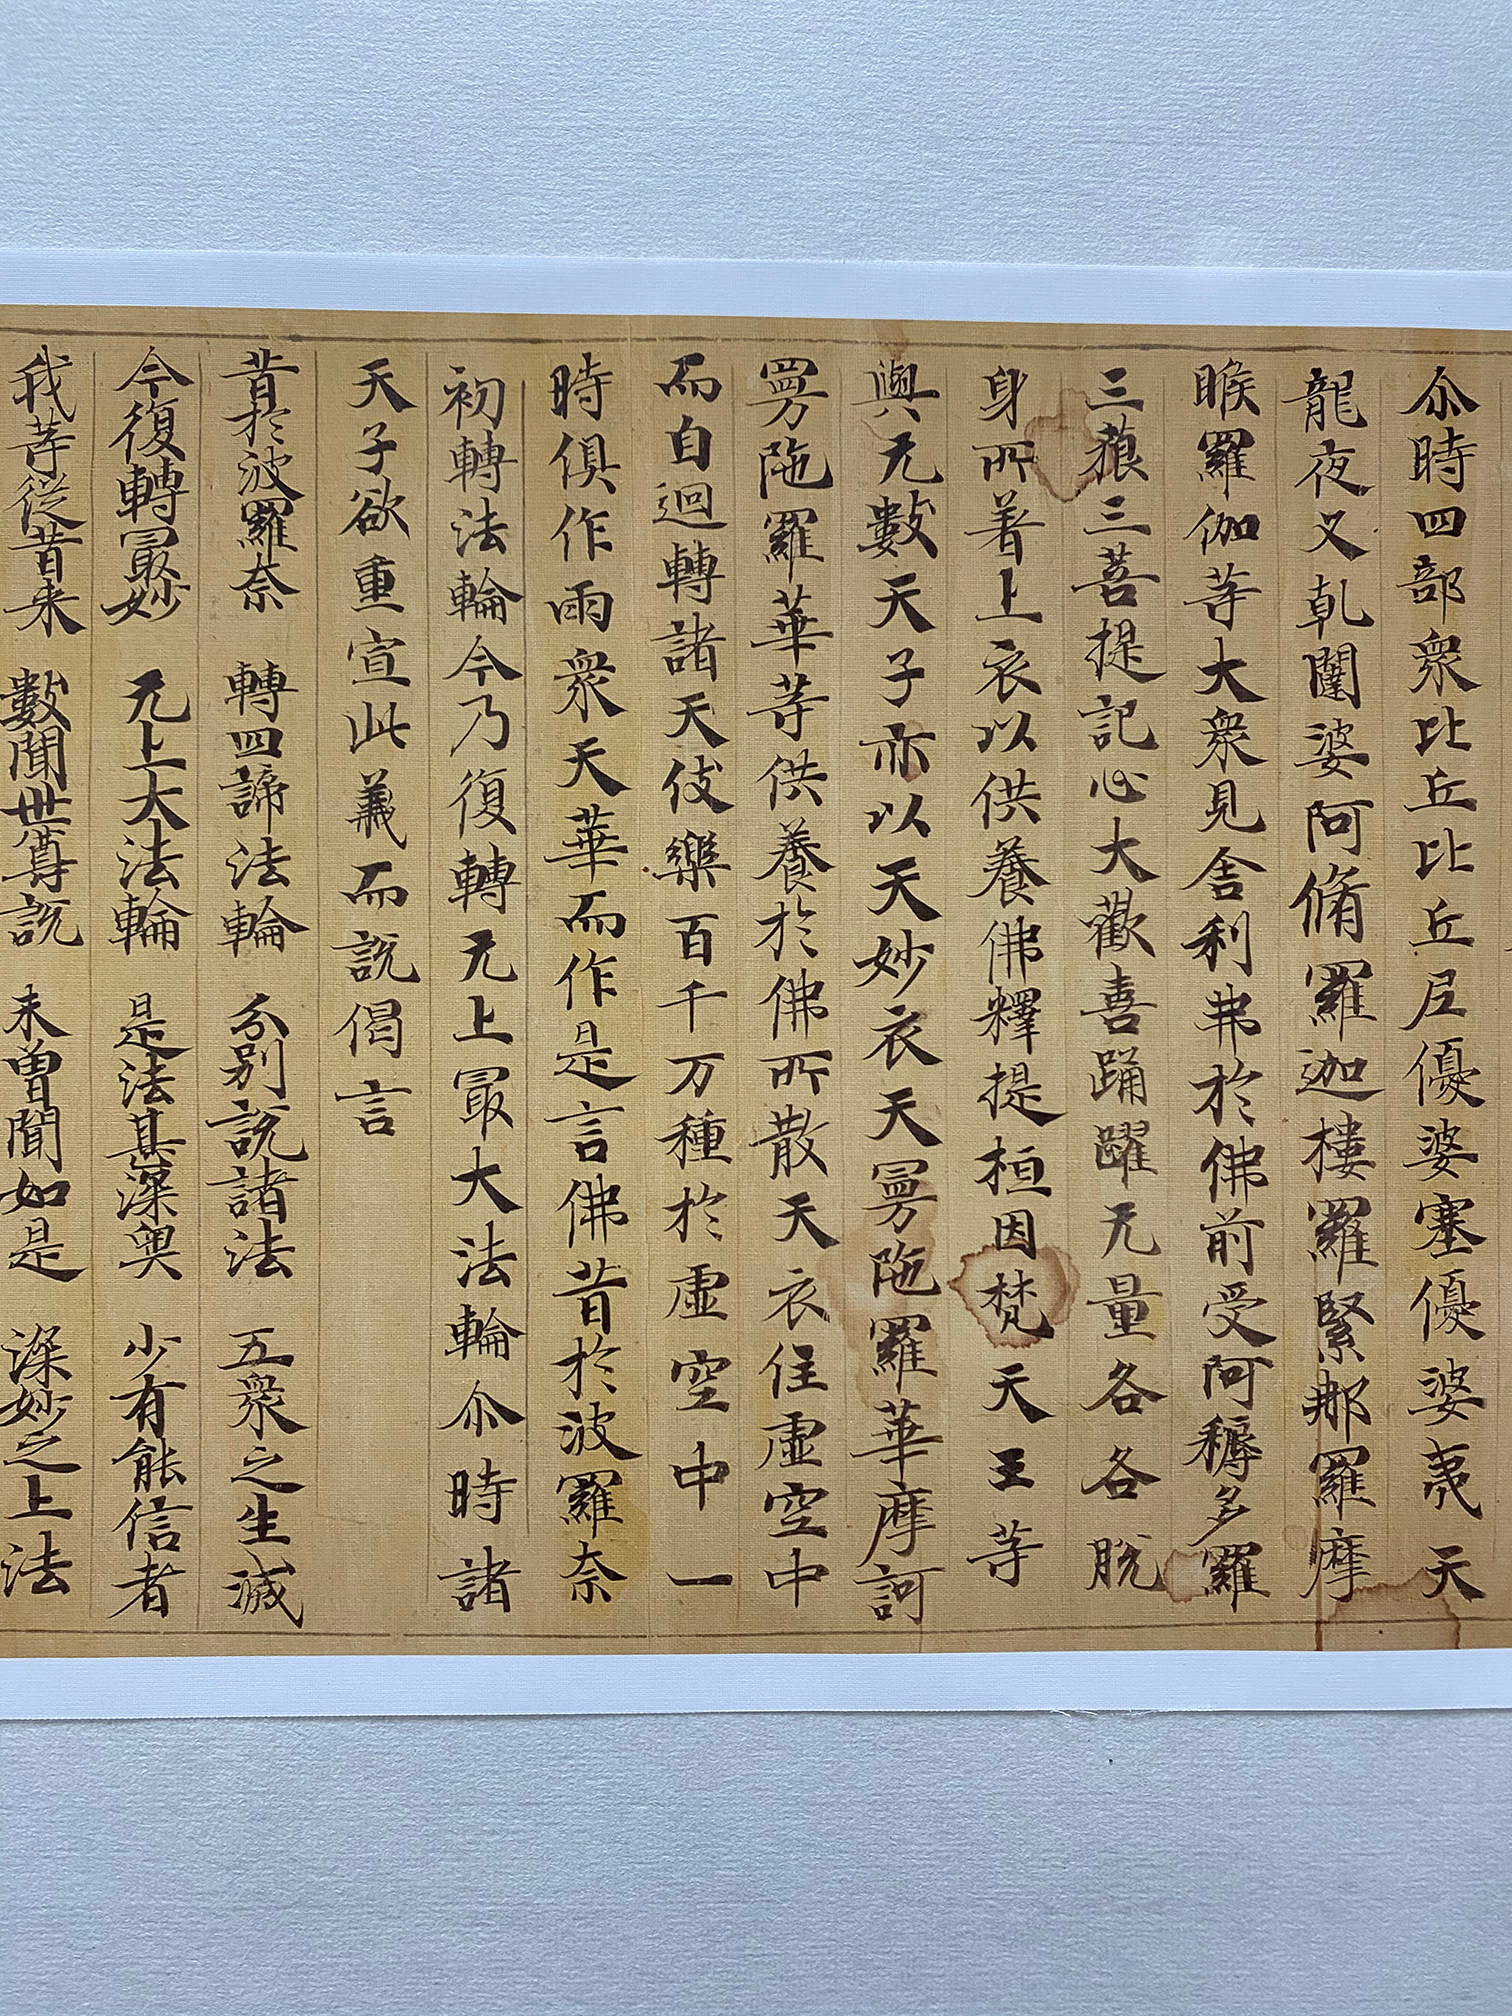 尒時四部衆比丘比丘尼優婆塞優婆夷天
龍夜叉乹闥婆阿脩羅迦樓羅緊那羅摩
睺羅伽等大衆見舍利弗於佛前受阿耨多羅
三藐三菩提記心大歡喜踊躍无量各各脫
身所著上衣以供養佛釋提桓因梵天王等
與无數天子亦以天妙衣天曼陁羅華摩訶
曼陁羅華等供養於佛所散天衣住虛空中
而自迴轉諸天伎樂百千万種於虛空中一
時俱作雨衆天華而作是言佛昔於波羅奈
初轉法輪今乃復轉无上最大法輪尒時諸
天子欲重宣此義而說偈言
昔於波羅奈 轉四諦法輪 分別說諸法 五衆之生滅
今復轉最妙 无上大法輪 是法甚深奧 少有能信者
我等從昔来 數聞世尊說 未曾聞如是 深妙之上法